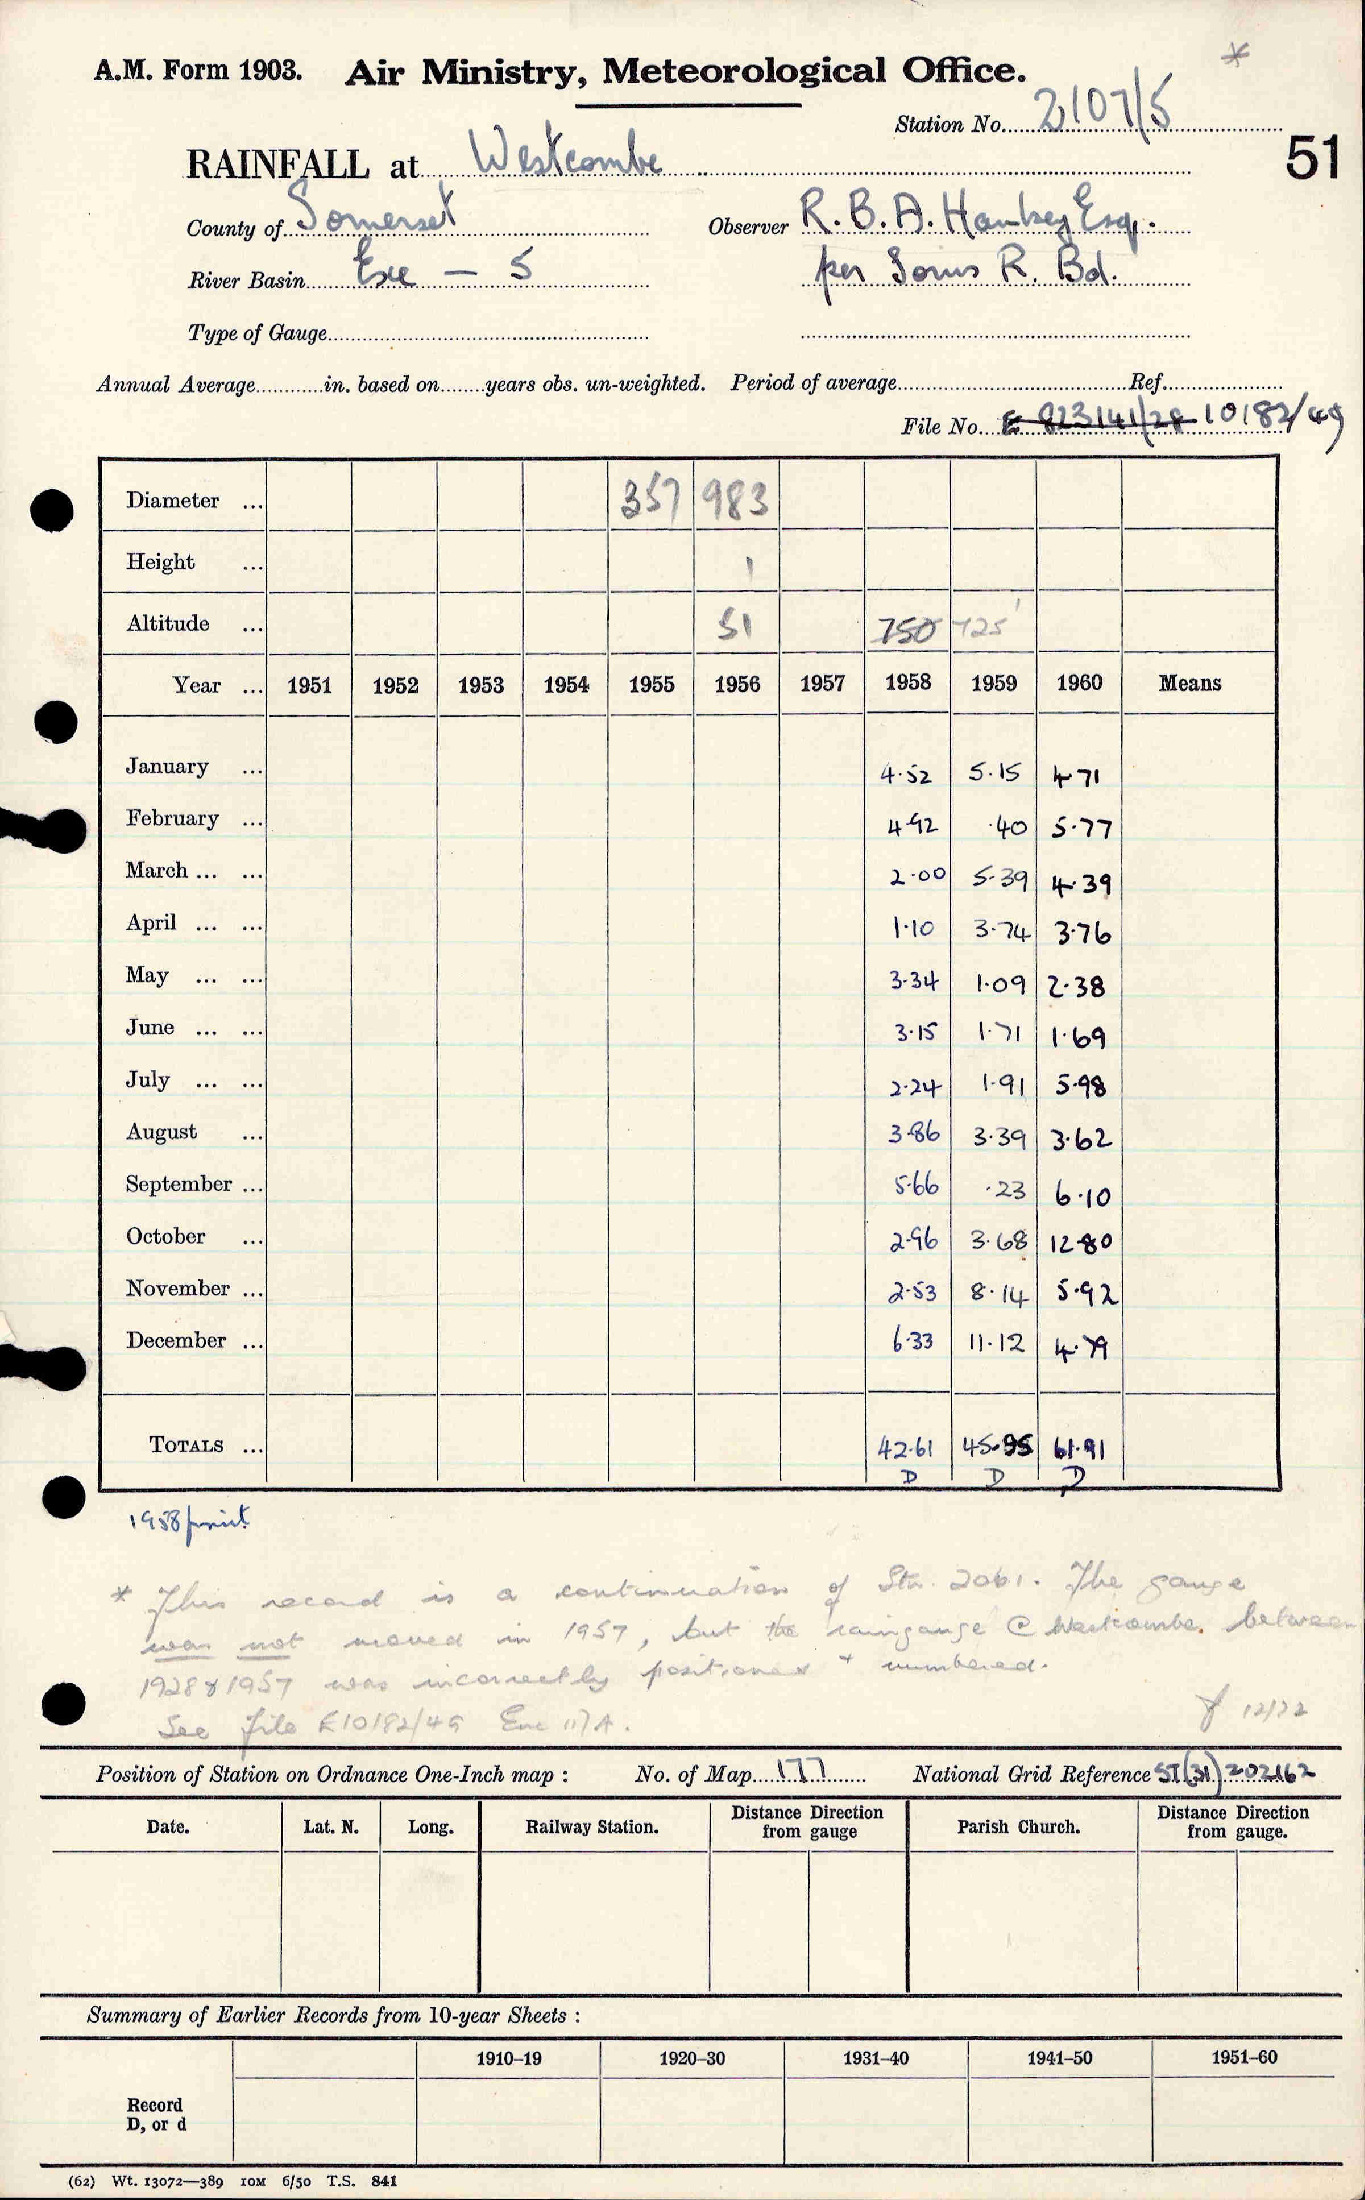 *
A.M. Form 1903. Air Ministry, Meteorological Office.
Station No. 2107/5
51
RAINFALL at Westcombe
County of Somerset Observer R. B. A. Hankey Esq.
River Basin Exe — 5 per Soms R. Bd.
Type of Gauge
Annual Average in. based on years obs. un-weighted. Period of average Ref.
File No. E 823141/28 10182/49
Diameter ... 357 983
Height ... 1
Altitude ... 51 750 725'
Year ... 1951 1952 1953 1954 1955 1956 1957 1958 1959 1960 Means
January ... 4.52 5.15 4.71
February ... 4.92 .40 5.77
March ... ... 2.00 5.39 4.39
April ... ... 1.10 3.74 3.76
May ... ... 3.34 1.09 2.38
June ... ... 3.15 1.71 1.69
July ... ... 2.24 1.91 5.98
August ... 3.86 3.39 3.62
September ... 5.66 .23 6.10
October ... 2.96 3.68 12.80
November ... 2.53 8.14 5.92
December ... 6.33 11.12 4.79
TOTALS ... 42.61 45.95 61.91
D D D
1958 print
* This record is a continuation of Stn. 2061. The gauge
was not moved in 1957, but the raingauge @ Westcombe between
1928 & 1957 was incorrectly positioned + numbered.
See file E10182/49 Enc 117A.
12/72
Position of Station on Ordnance One-Inch map : No. of Map 177 National Grid Reference ST(31) 202162
Date. Lat. N. Long. Railway Station. Distance Direction from gauge Parish Church. Distance Direction from gauge.
Summary of Earlier Records from 10-year Sheets :
1910–19 1920–30 1931–40 1941–50 1951–60
Record
D, or d
(62) Wt. 13072—389 10M 6/50 T.S. 841